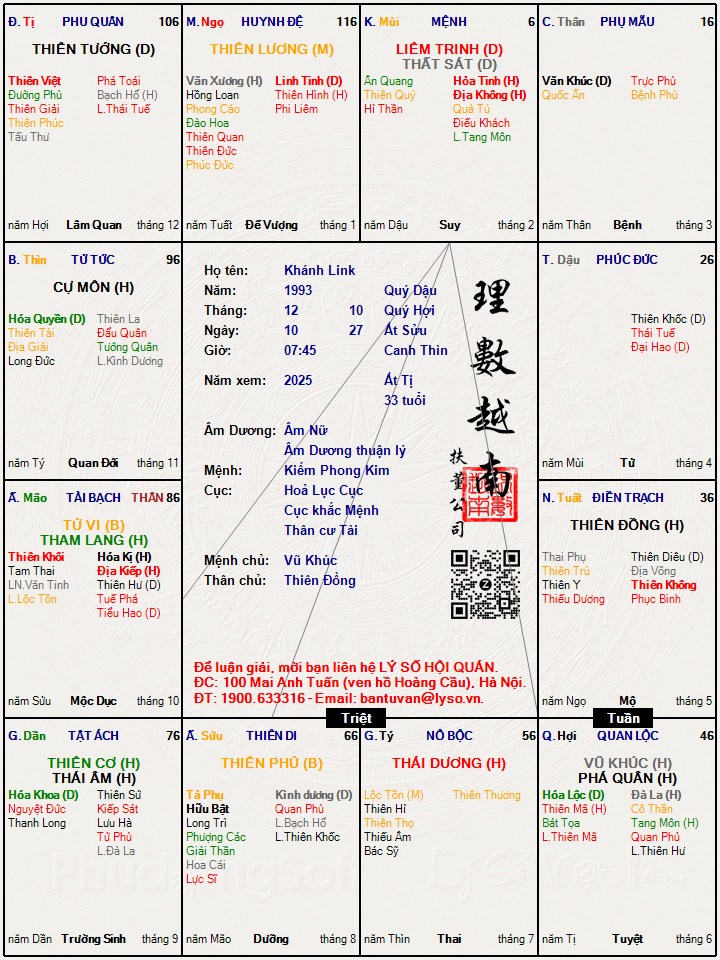 Đ. Tị PHU QUÂN 106
THIÊN TƯỚNG (D)
Thiên Việt Phá Toái
Đường Phù Bạch Hổ (H)
Thiên Giải L.Thái Tuế
Thiên Phúc
Tấu Thư
năm Hợi Lâm Quan tháng 12
M. Ngọ HUYNH ĐỆ 116
THIÊN LƯƠNG (M)
Văn Xương (H) Linh Tinh (D)
Hồng Loan Thiên Hình (H)
Phong Cáo Phi Liêm
Đào Hoa
Thiên Quan
Thiên Đức
Phúc Đức
năm Tuất Đế Vượng tháng 1
K. Mùi MỆNH 6
LIÊM TRINH (D)
THẤT SÁT (D)
Ân Quang Hỏa Tinh (H)
Thiên Quý Địa Không (H)
Hỉ Thần Quả Tú
Điếu Khách
L.Tang Môn
năm Dậu Suy tháng 2
C. Thân PHỤ MẪU 16
Văn Khúc (D) Trực Phù
Quốc Ấn Bệnh Phù
năm Thân Bệnh tháng 3
B. Thìn TỬ TỨC 96
CỰ MÔN (H)
Hóa Quyền (D) Thiên La
Thiên Tài Đẩu Quân
Địa Giải Tướng Quân
Long Đức L.Kình Dương
năm Tý Quan Đới tháng 11
Họ tên: Khánh Link
Năm: 1993 Quý Dậu
Tháng: 12 10 Quý Hợi
Ngày: 10 27 Ất Sửu
Giờ: 07:45 Canh Thìn
Năm xem: 2025 Ất Tị
33 tuổi
Âm Dương: Âm Nữ
Âm Dương thuận lý
Mệnh: Kiếm Phong Kim
Cục: Hoả Lục Cục
Cục khắc Mệnh
Thân cư Tài
Mệnh chủ: Vũ Khúc
Thân chủ: Thiên Đồng
理數越南
扶董公司
Để luận giải, mời bạn liên hệ LÝ SỐ HỘI QUÁN.
ĐC: 100 Mai Anh Tuấn (ven hồ Hoàng Cầu), Hà Nội.
ĐT: 1900.633316 - Email: bantuvan@lyso.vn.
T. Dậu PHÚC ĐỨC 26
Thiên Khốc (D)
Thái Tuế
Đại Hao (D)
năm Mùi Tử tháng 4
Ấ. Mão TÀI BẠCH THÂN 86
TỬ VI (B)
THAM LANG (H)
Thiên Khôi Hóa Kị (H)
Tam Thai Địa Kiếp (H)
LN.Văn Tinh Thiên Hư (D)
L.Lộc Tồn Tuế Phá
Tiểu Hao (D)
năm Sửu Mộc Dục tháng 10
N. Tuất ĐIỀN TRẠCH 36
THIÊN ĐỒNG (H)
Thai Phụ Thiên Diêu (D)
Thiên Trù Địa Võng
Thiên Y Thiên Không
Thiếu Dương Phục Binh
năm Ngọ Mộ tháng 5
Triệt
Tuần
G. Dần TẬT ÁCH 76
THIÊN CƠ (H)
THÁI ÂM (H)
Hóa Khoa (D) Thiên Sứ
Nguyệt Đức Kiếp Sát
Thanh Long Lưu Hà
Tử Phù
L.Đà La
năm Dần Trường Sinh tháng 9
Ấ. Sửu THIÊN DI 66
THIÊN PHỦ (B)
Tả Phụ Kình dương (D)
Hữu Bật Quan Phù
Long Trì L.Bạch Hổ
Phượng Các L.Thiên Khốc
Giải Thần
Hoa Cái
Lực Sĩ
năm Mão Dưỡng tháng 8
G. Tý NÔ BỘC 56
THÁI DƯƠNG (H)
Lộc Tồn (M) Thiên Thương
Thiên Hỉ
Thiên Thọ
Thiếu Âm
Bác Sỹ
năm Thìn Thai tháng 7
Q. Hợi QUAN LỘC 46
VŨ KHÚC (H)
PHÁ QUÂN (H)
Hóa Lộc (D) Đà La (H)
Thiên Mã (H) Cô Thần
Bát Tọa Tang Môn (H)
L.Thiên Mã Quan Phủ
L.Thiên Hư
năm Tị Tuyệt tháng 6